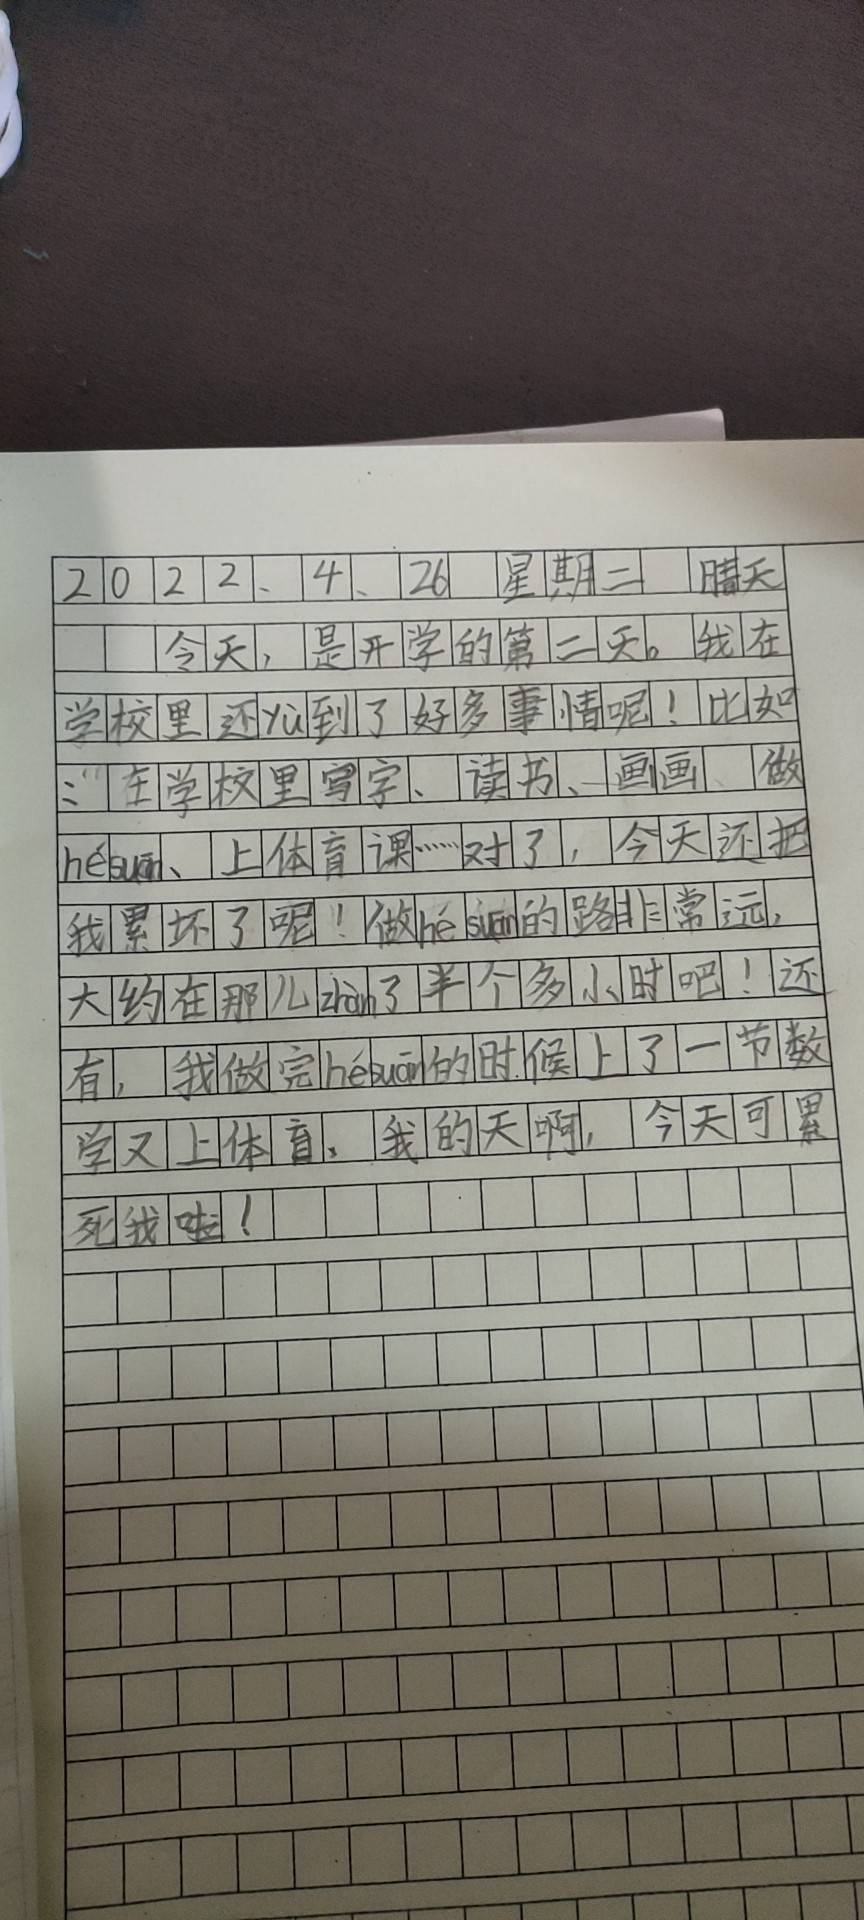 2022、4、26 星期二 晴天
今天，是开学的第二天。我在
学校里还yù到了好多事情呢！比如
：“在学校里写字、读书、画画、做
hésuān、上体育课……对了，今天还把
我累坏了呢！做hésuān的路非常远，
大约在那儿zhàn了半个多小时吧！还
有，我做完hésuān的时候上了一节数
学又上体育、我的天啊，今天可累
死我啦！